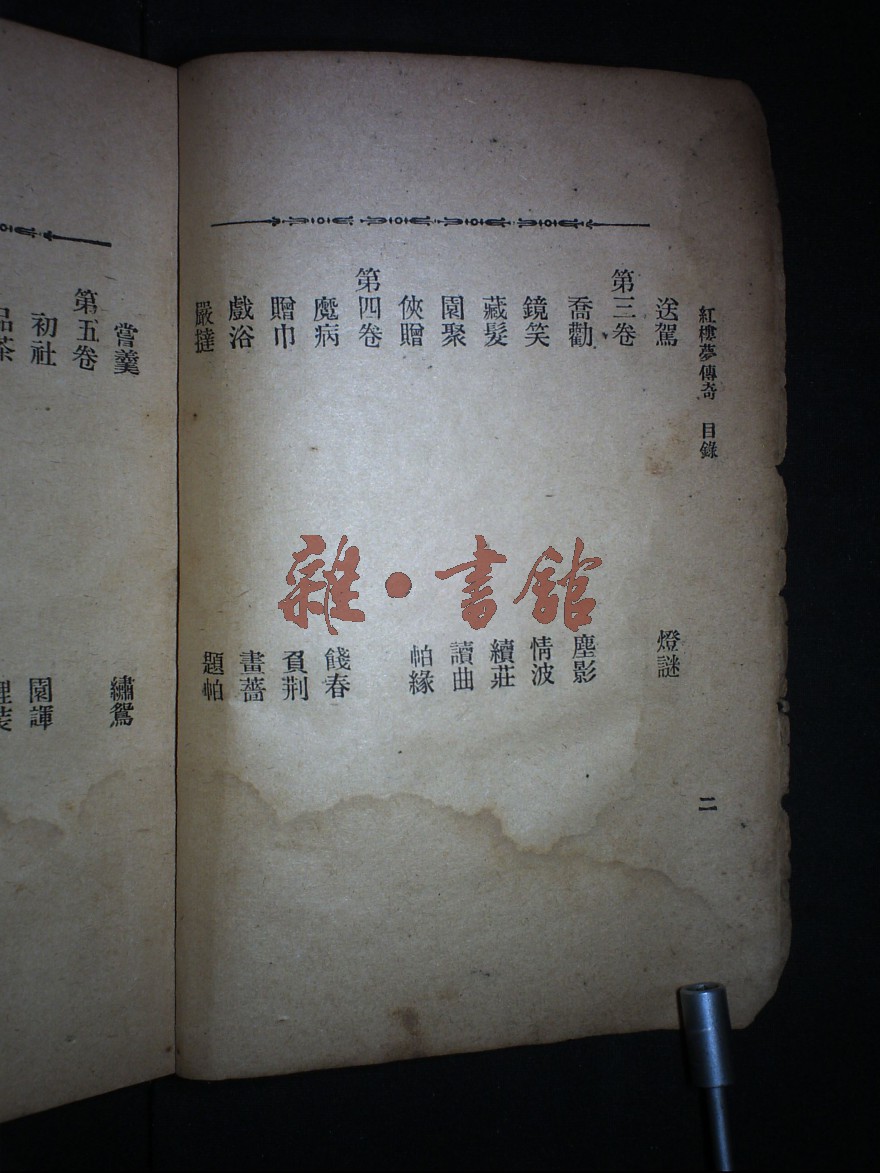 紅樓夢傳奇 目錄 二
送駕 燈謎
第三卷
喬勸 塵影
鏡笑 情波
藏髮 續莊
園聚 讀曲
俠贈 帕緣
第四卷
魔病 餞春
贈巾 負荆
戲浴 畫薔
嚴撻 題帕
嘗羹 繡鴛
第五卷
初社 園諢
品茶
雜·書館